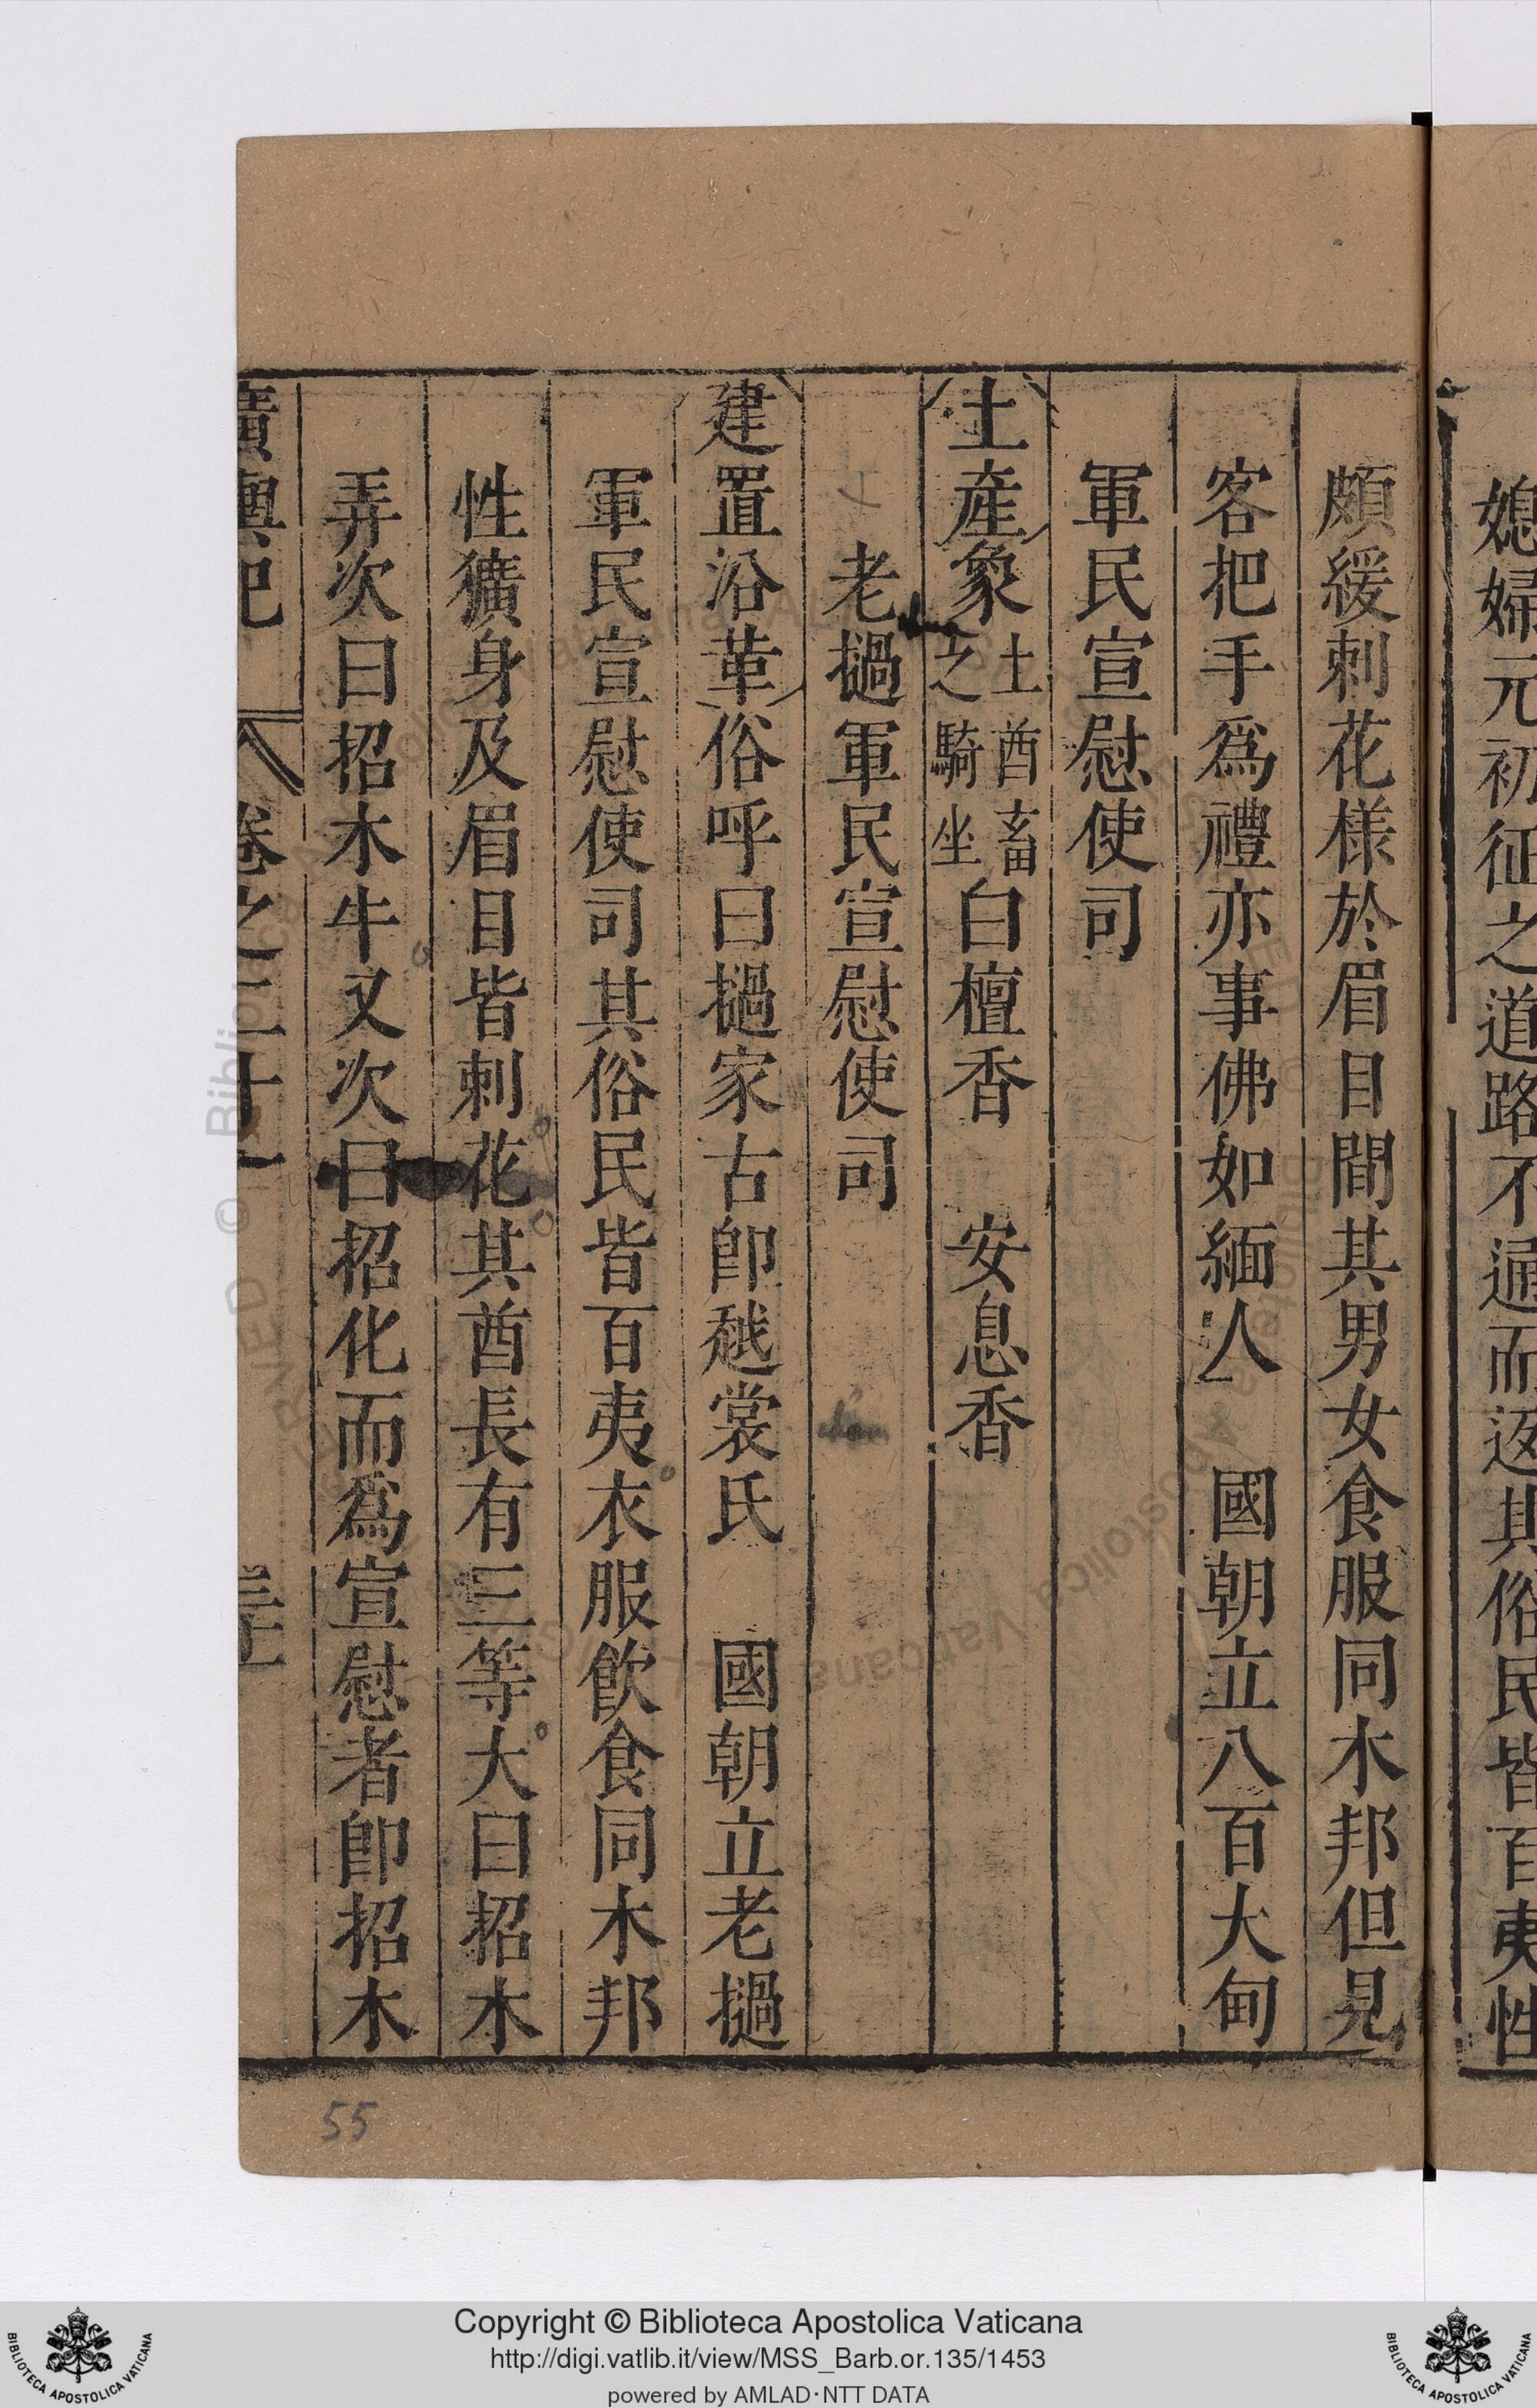 媳婦元初征之道路不通而返其俗民皆百夷性
頗緩刺花樣於眉目間其男女食服同木邦但見
客把手爲禮亦事佛如緬人　國朝立八百大甸
軍民宣慰使司
土產象土酋畜之騎坐白檀香　安息香
老撾軍民宣慰使司
建置沿革俗呼曰撾家古卽越裳氏　國朝立老撾
軍民宣慰使司其俗民皆百夷衣服飲食同木邦
性獷身及眉目皆刺花其酋長有三等大曰招木
弄次曰招木牛又次曰招化而爲宣慰者卽招木
廣輿記　卷之二十一
55
Copyright © Biblioteca Apostolica Vaticana
http://digi.vatlib.it/view/MSS_Barb.or.135/1453
powered by AMLAD·NTT DATA
BIBLIOTECA APOSTOLICA VATICANA
BIBLIOTECA APOSTOLICA VATICANA